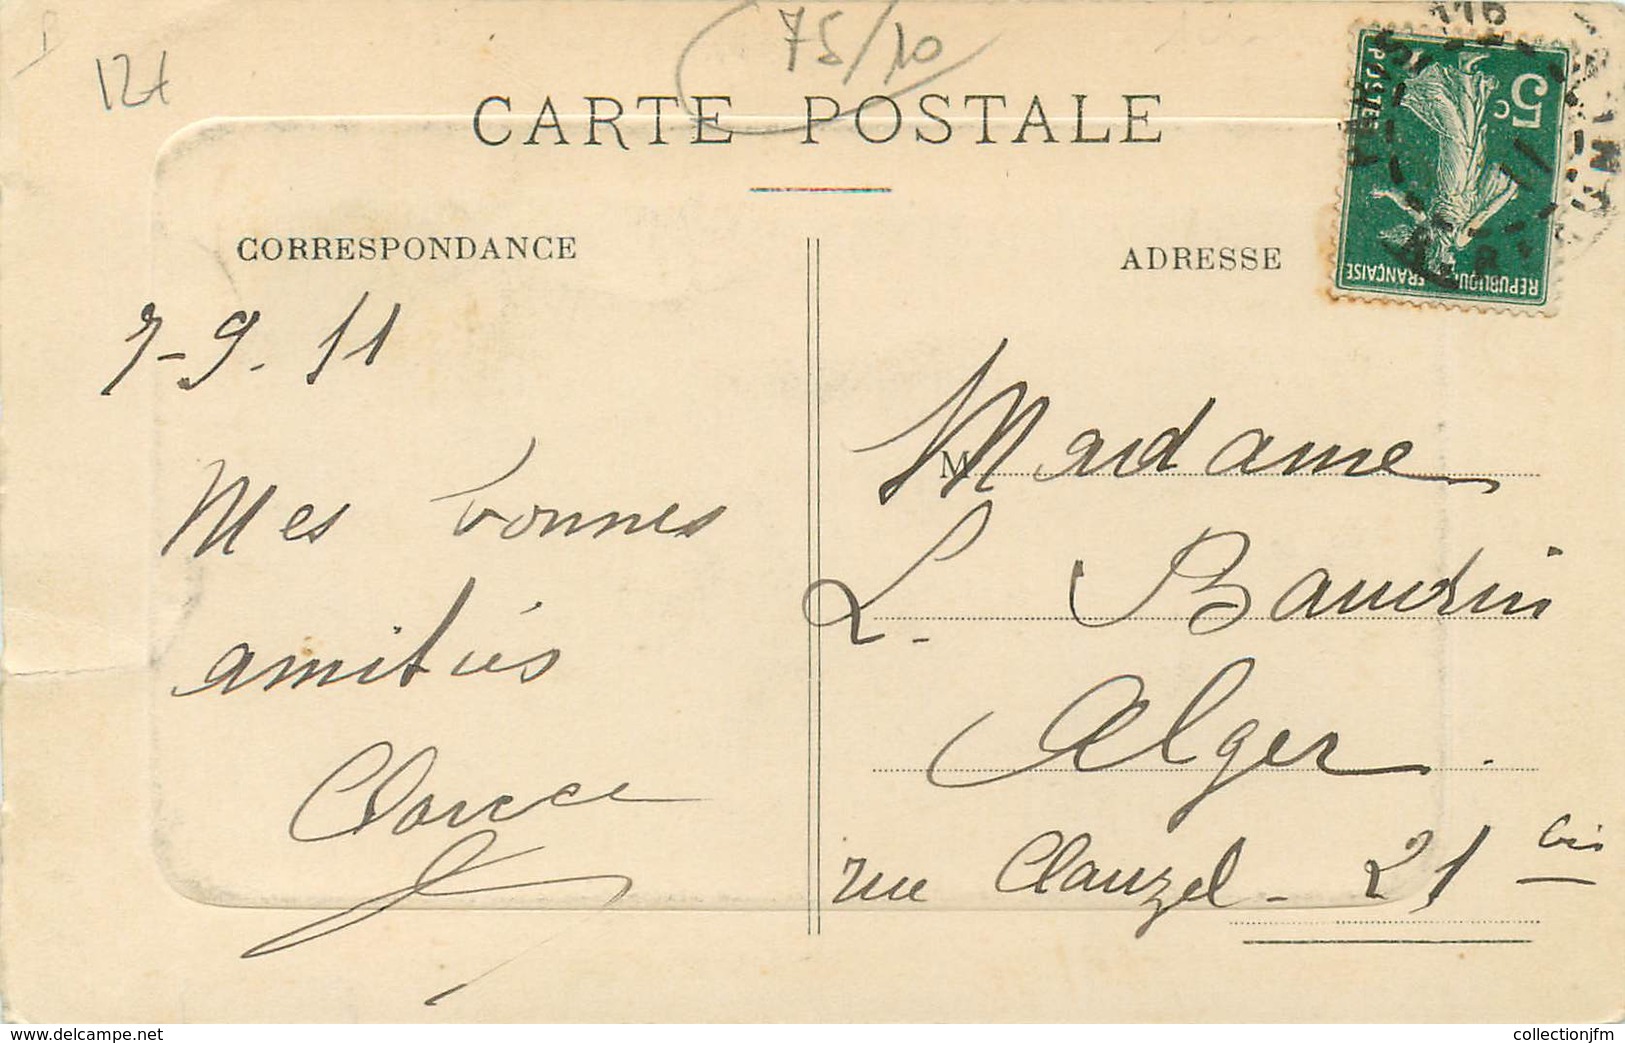 75/10
CARTE POSTALE
5c
POSTES
REPUBLIQUE FRANÇAISE
CORRESPONDANCE
7-9.11
Mes bonnes
amitiés
ADRESSE
M
Madame
L. Baudrin
Alger.
rue Clauzel - 21 bis
www.delcampe.net
collectionjfm